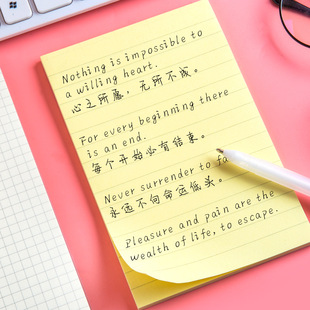 Nothing is impossible to
a willing heart.
心之所愿，无所不成。
For every beginning there
is an end.
每个开始必有结束。
Never surrender to fa
永远不向命运低头。
Pleasure and pain are the
wealth of life, to escape.